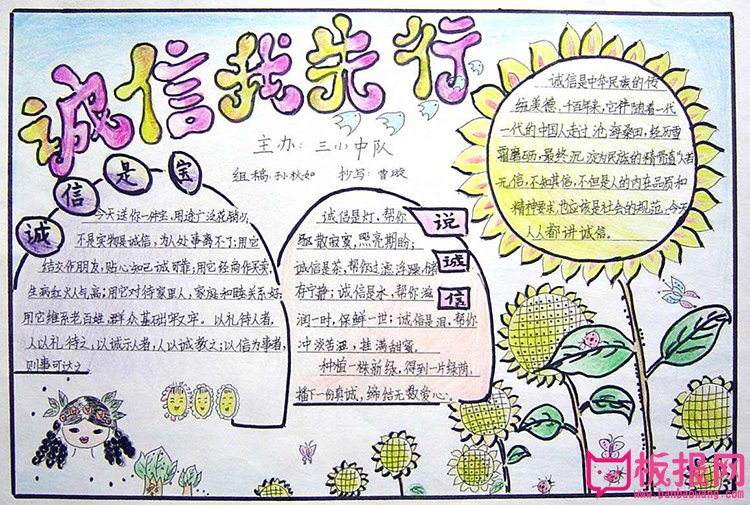 诚信我先行
主办：三小中队
组稿：孙秋如 抄写：曹璇
诚信是宝
今天送你一件宝，用途广泛花销少，
不是实物是诚信，为人处事离不了；用它
结交作朋友，贴心知己诚可靠；用它经商作买卖，
生病红火人气高；用它对待家里人，家庭和睦关系好；
用它维系老百姓，群众基础牢又牢。以礼待人者，
人以礼待之，以诚示人者，人以诚教之；以信为事者，
则事可达之
说诚信
诚信是灯，帮你
驱散寂寞，照亮期盼；
诚信是茶，帮你过滤浮躁，储
存宁静；诚信是水，帮你滋
润一时，保鲜一世；诚信是泪，帮你
冲淡苦涩，挂满甜蜜。
种植一株新绿，得到一片绿荫，
播下一份真诚，缔结无数爱心。
诚信是中华民族的传
统美德，千百年来，它伴随着一代
一代的中国人走过沧海桑田，经历雪
霜磨砺，最终沉淀为民族的精骨，"人若
无信，不知其信，不但是人的内在品质和
精神要求，也应该是社会的规范，今天
人人都讲诚信。
板报网
www.banbaowang.com